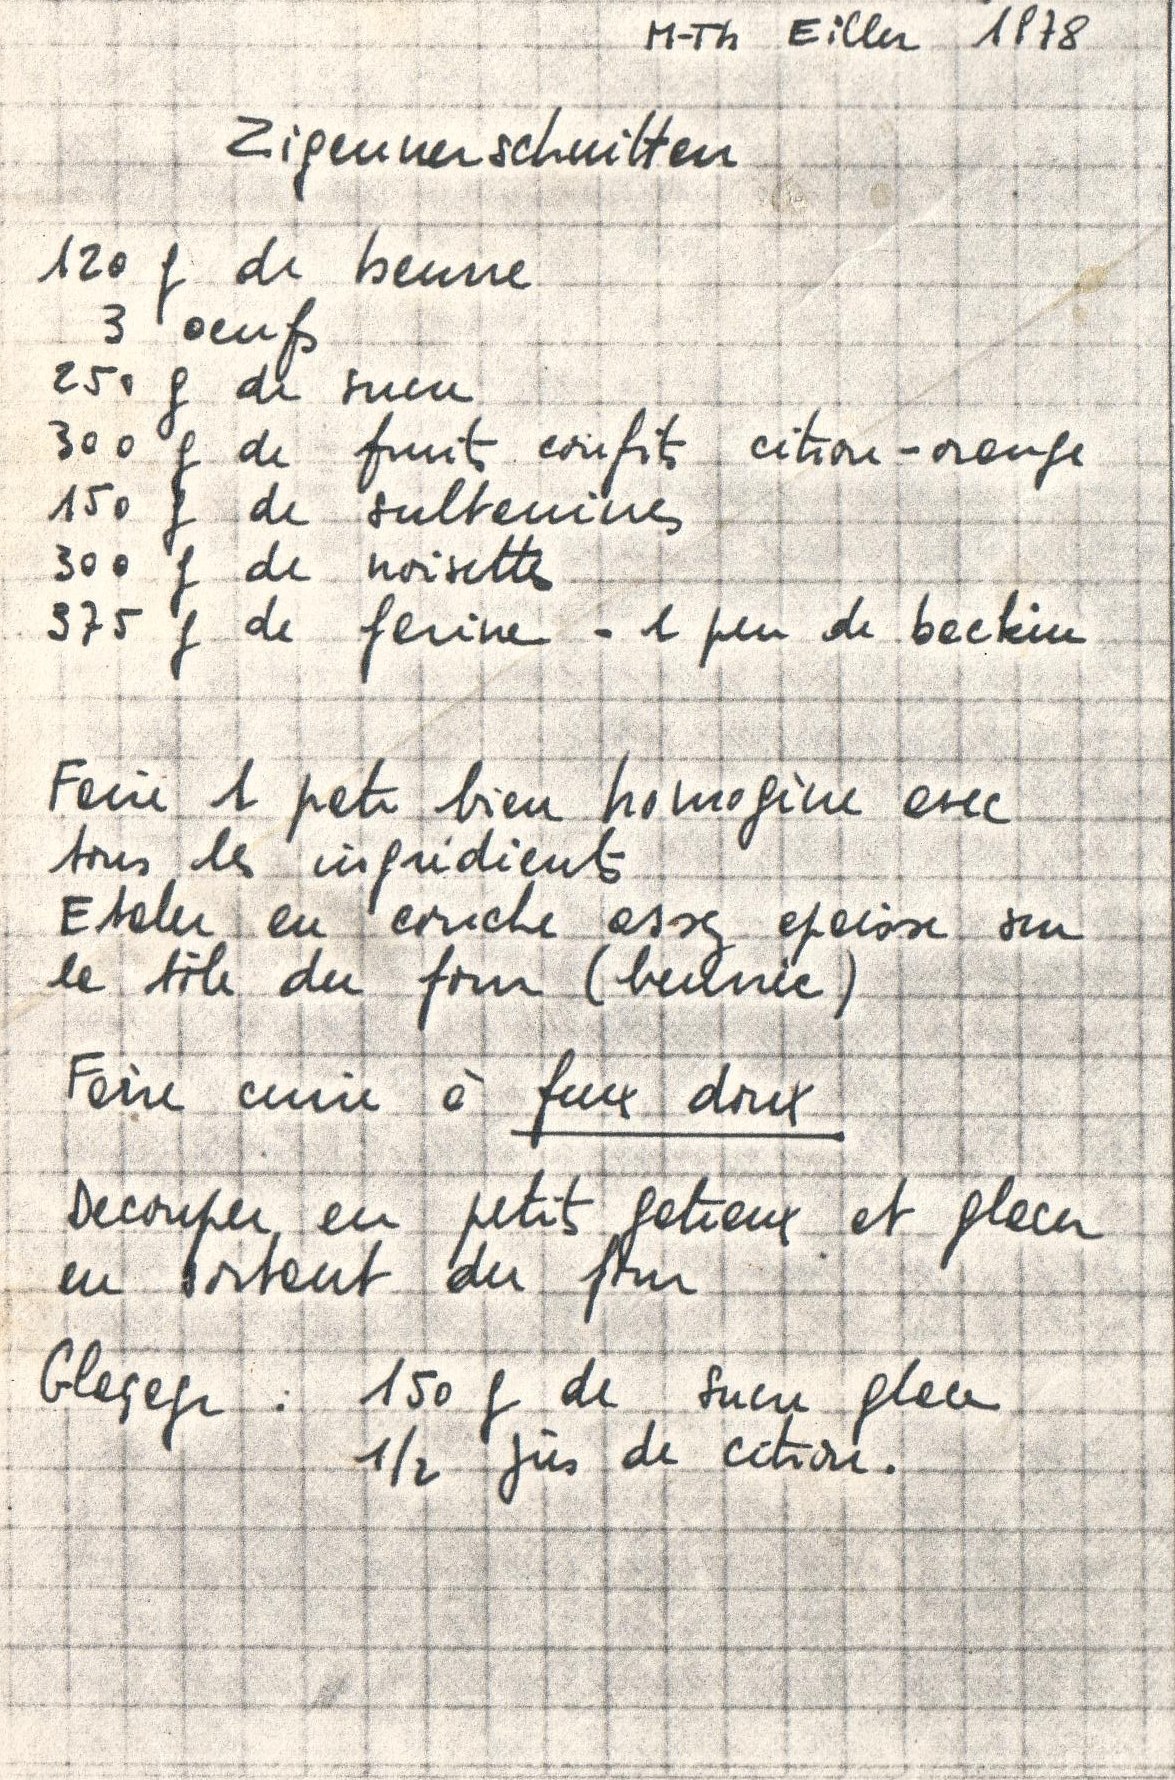 M-Th Eiller 1978
Zigeunerschnitten
120 g de beurre
3 oeufs
250 g de sucre
300 g de fruits confits citron-orange
150 g de sultanines
300 g de noisettes
375 g de farine - 1 peu de backin
Faire 1 pate bien homogène avec
tous les ingrédients
Etaler en couche assez epaisse sur
la tôle du four (beurrée)
Faire cuire à feux doux
Decouper en petits gateaux et glacer
en sortant du four
Glaçage : 150 g de sucre glace
1/2 jus de citron.